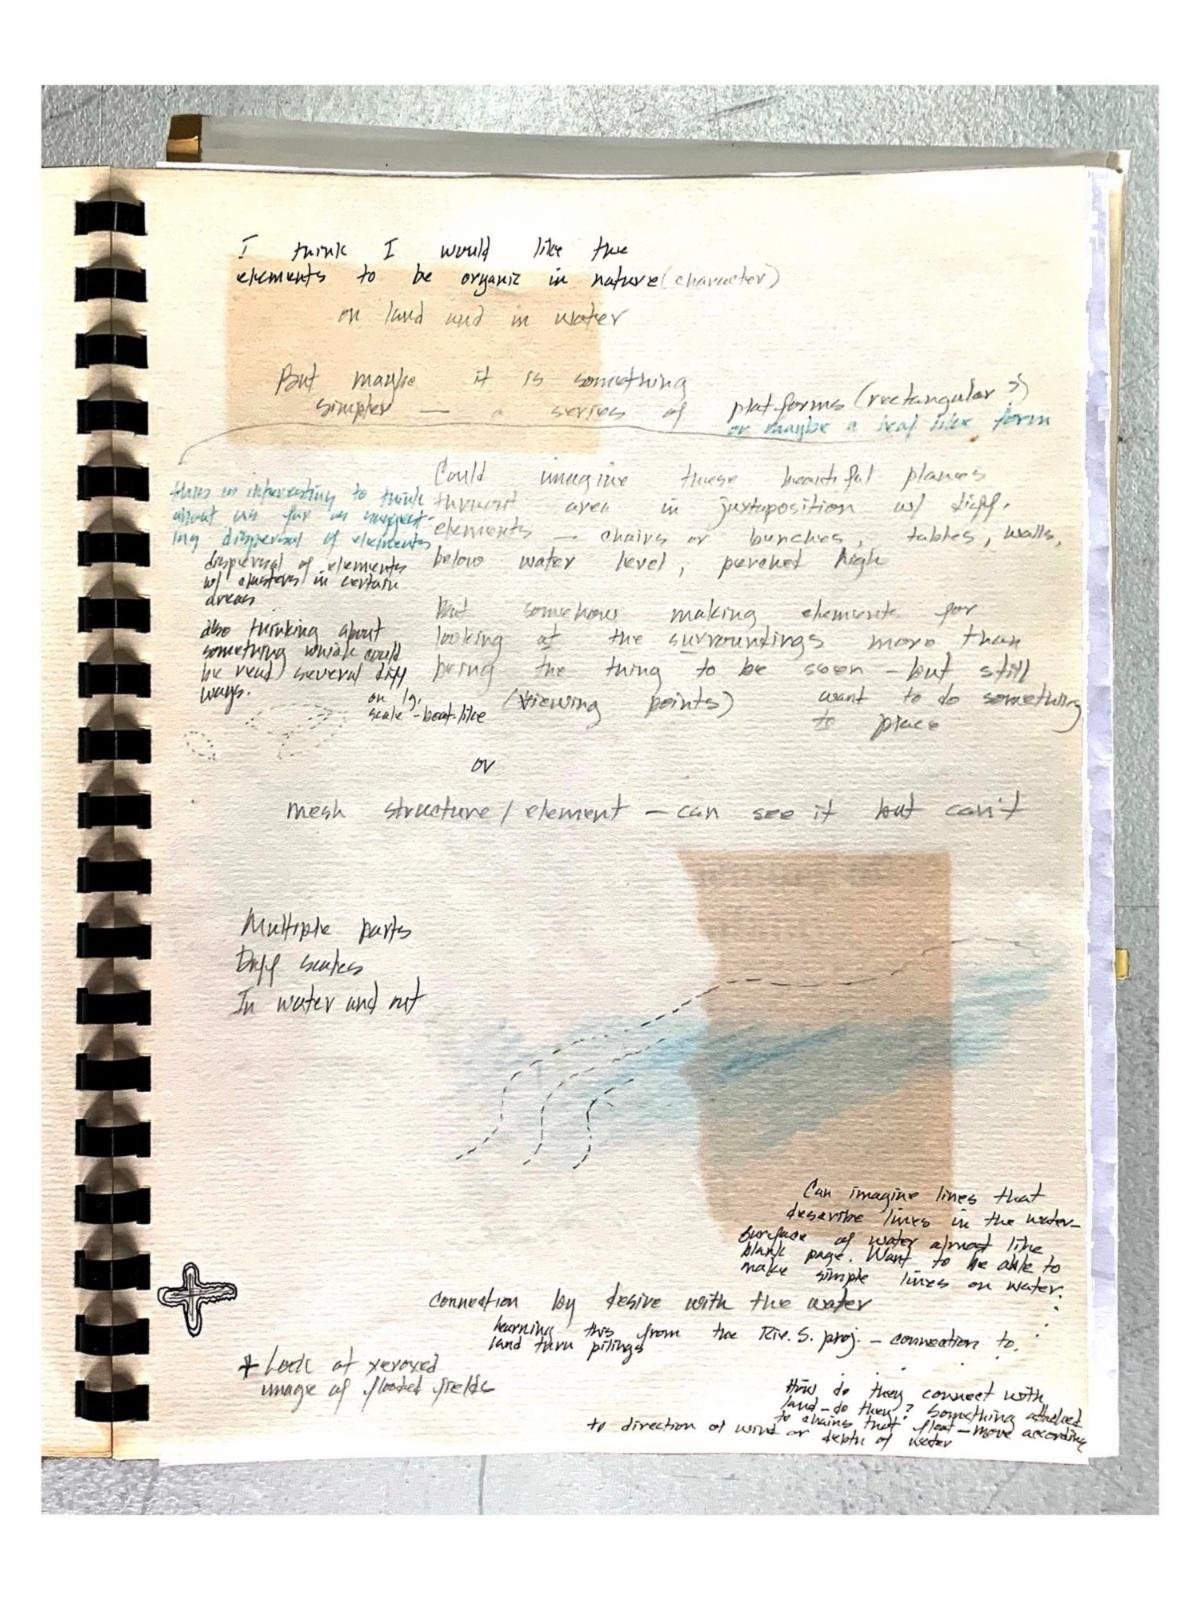 I think I would like the
elements to be organic in nature (character)
on land and in water
But maybe it is something
simpler — a series of platforms (rectangular?)
or maybe a leaf like form
this is interesting to think
about as far as suggest-
ing dispersal of elements
dispersal of elements
w/ clusters in certain
areas
also thinking about
something which could
be read) several diff
ways.
on lg.
scale - boat-like
Could imagine these beautiful planes
thruout area in juxtaposition w/ diff.
elements — chairs or bunches, tables, walls,
below water level, perched high
But somehow making elements for
looking at the surroundings more than
being the thing to be seen - but still
(viewing points) want to do something
to place
or
mesh structure / element - can see it but can't
Multiple parts
Diff scales
In water and not
Can imagine lines that
describe lines in the water-
surface of water almost like
blank page. Want to be able to
make simple lines on water.
connection by desire with the water
learning this from the Riv. S. proj. - connection to.
land thru pilings
+ Look at xeroxed
image of flooded fields
How do they connect with
land - do they? Something attached
to chains that float - move according
to direction of wind or depth of water